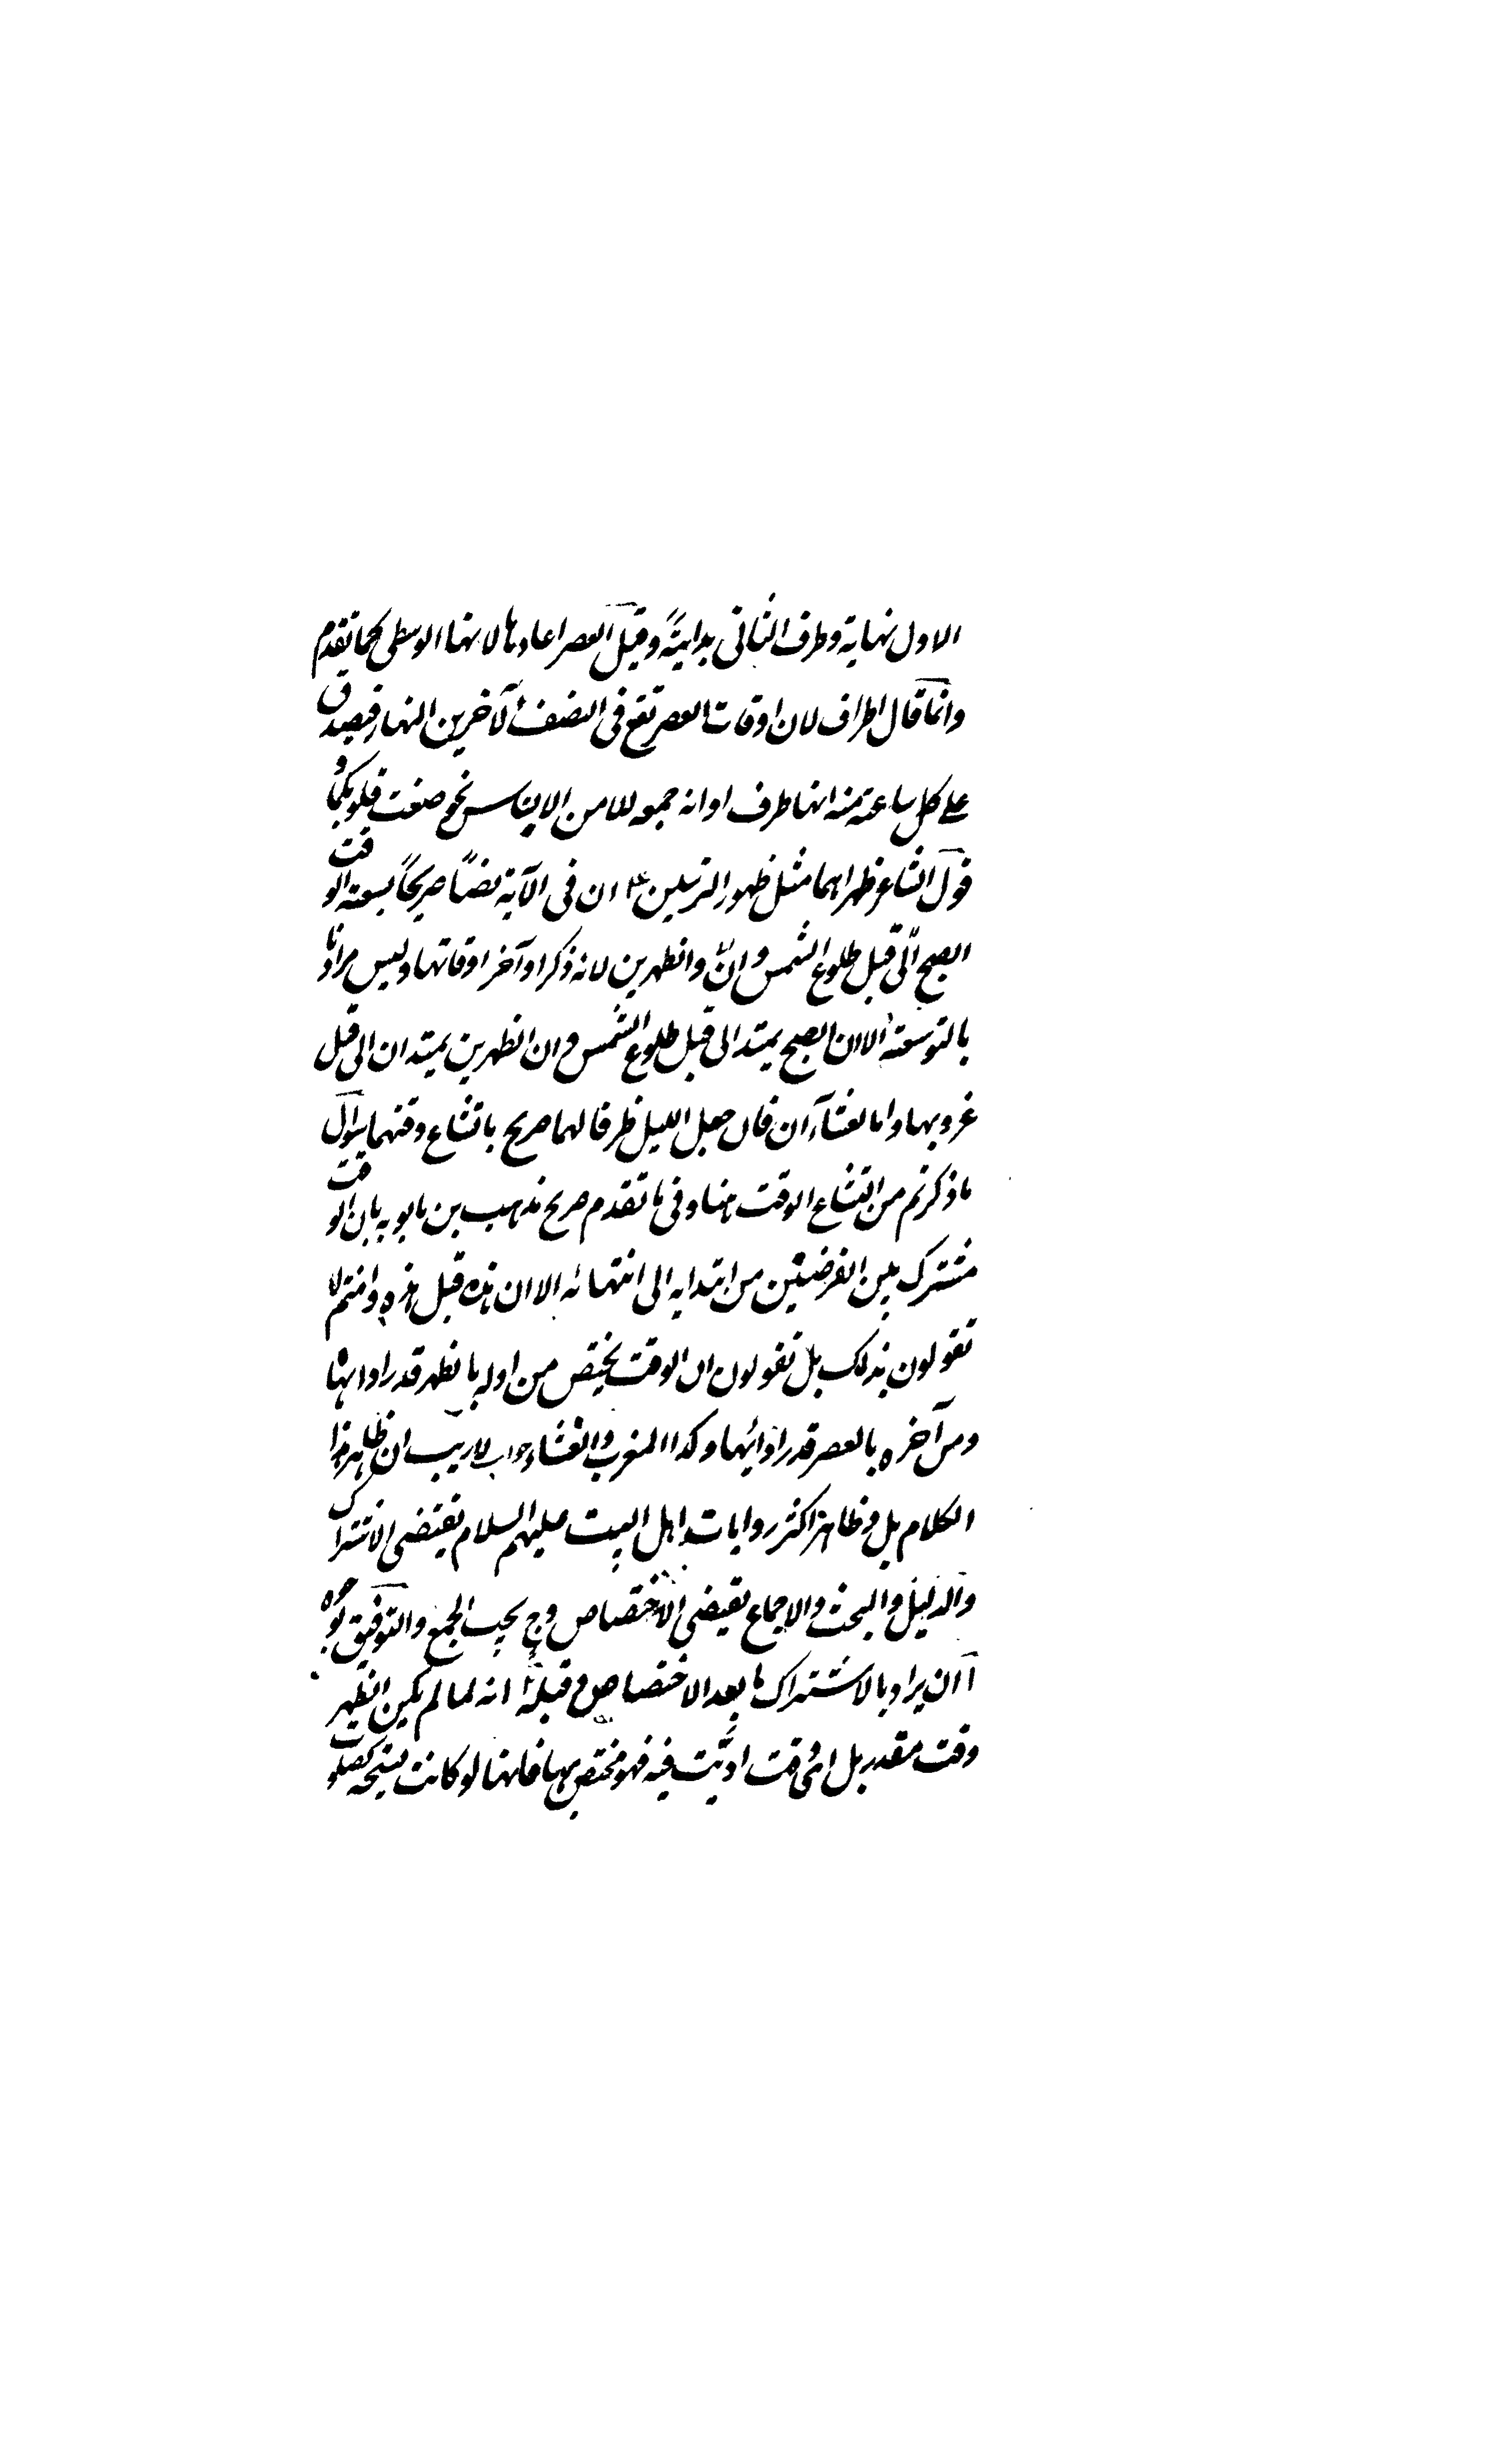 الاول نهاية وطرف الثانى بداية وقيل العصر اعادها لانها الوسطى كما تقدم
وانما قال اطراف لان اوقات العصر تقع فى النصف الآخر من النهار فيصدق
على كل ساعة منه انها طرف او انه جمع للامن الالباس نحو صغت قلوبكما و
قول الشاعر ظهراهما مثل ظهور الترسين ان فى الآية نصّاً صريحاً بسعة الوقت
الصبح الى قبل طلوع الشمس وان والظهرين لانه ذكر اواخر اوقاتها وليس مرادنا
بالتوسعة الا ان الصبح يمتد الى قبل طلوع الشمس وان الظهرين يمتدان الى قبل
غروبها واما العشاءان فان جعل الليل ظرفا لهما صريح باتساع وقتهما سؤال
ما ذكرتم من اتساع الوقت هنا وفى ما تقدم صريح مذهب بن بابويه بان الوقت
مشترك بين الفرضين من ابتدايه الى انتهائه الا ان هذه قبل هذه وانتم لا
تقولون بذلك بل تقولون ان الوقت يختص من اوله بالظهر قدر ادائها
ومن آخره بالعصر قدر ادائها وكذا المغرب والعشاء جواب لا ريب ان ظاهر هذا
الكلام بل وظاهر اكثر روايات اهل البيت عليهم السلام تقتضى الاشتراك
والدليل والبحث والاجماع تقتضى الاختصاص وح يجب الجمع والتوفيق بوجوه
آ ان يراد بالاشتراك ما بعد الاختصاص وقبله انه لما لم يكن للظهر
وقت مقدر بل اى وقت اديت فيه فهو مختص بها فانها لو كانت تسبيحة كصلوت